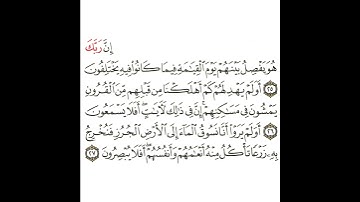 إِنَّ رَبَّكَ
هُوَ يَفْصِلُ بَيْنَهُمْ يَوْمَ ٱلْقِيَٰمَةِ فِيمَا كَانُوا۟ فِيهِ يَخْتَلِفُونَ
٢٥ أَوَلَمْ يَهْدِ لَهُمْ كَمْ أَهْلَكْنَا مِن قَبْلِهِم مِّنَ ٱلْقُرُونِ
يَمْشُونَ فِى مَسَٰكِنِهِمْ ۚ إِنَّ فِى ذَٰلِكَ لَـَٔايَٰتٍ ۖ أَفَلَا يَسْمَعُونَ
٢٦ أَوَلَمْ يَرَوْا۟ أَنَّا نَسُوقُ ٱلْمَآءَ إِلَى ٱلْأَرْضِ ٱلْجُرُزِ فَنُخْرِجُ
بِهِۦ زَرْعًا تَأْكُلُ مِنْهُ أَنْعَٰمُهُمْ وَأَنفُسُهُمْ ۖ أَفَلَا يُبْصِرُونَ ٢٧